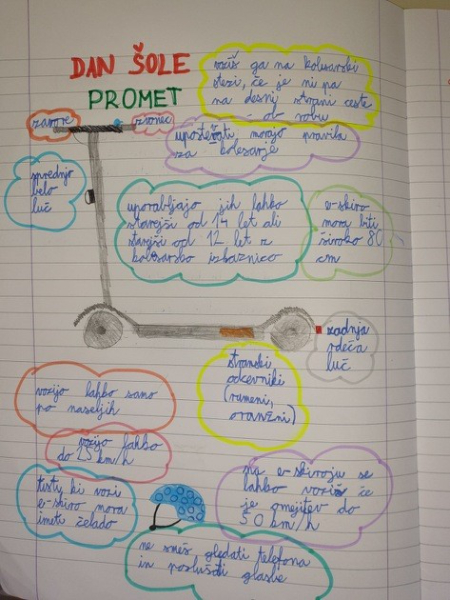 DAN ŠOLE
PROMET
voziš ga na kolesarski
stezi, če je ni pa
na desni strani ceste
- ob robu
zavore
zvonec
upoštevati, morajo pravila
za kolesarje
sprednjo
belo
luč
uporabljajo jih lahko
starejši od 14 let ali
starjši od 12 let z
kolesarsko izkaznico
e-skiro
mora biti
široko 80
cm
zadnja
rdeča
luč
stranski
odsevniki
(rumeni,
oranžni)
vozijo lahko samo
po naseljih
vozijo lahko
do 25 km/h
tisty ki vozi
e-skiro mora
imeti čelado
na e-skiroju se
lahko voziš če
je omejitev do
50 km/h
ne smeš, gledati telefona
in poslušati glasbe